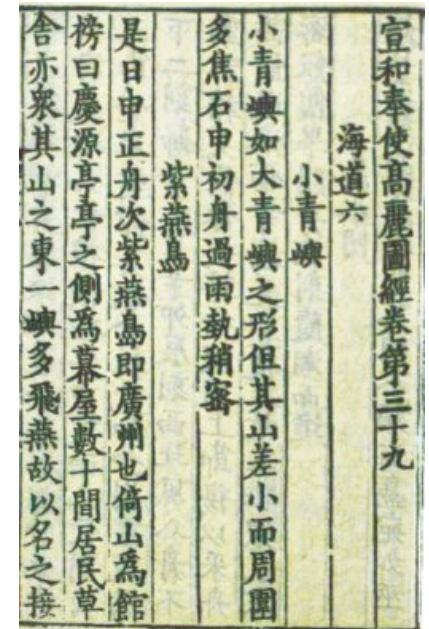 宣和奉使高麗圖經卷第三十九
海道六
小青嶼
小青嶼如大青嶼之形但其山差小而周圍
多焦石申初舟過雨勢稍密
紫燕島
是日申正舟次紫燕島即廣州也倚山爲館
榜曰慶源亭亭之側爲幕屋數十間居民草
舍亦衆其山之東一嶼多飛燕故以名之接